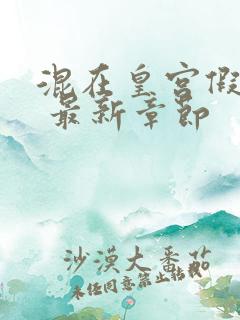 混在皇宫假
最新章节
沙漠大番茄
未经同意禁止转载